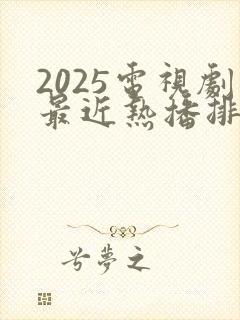 2025電視劇
最近熱播排
兮夢之